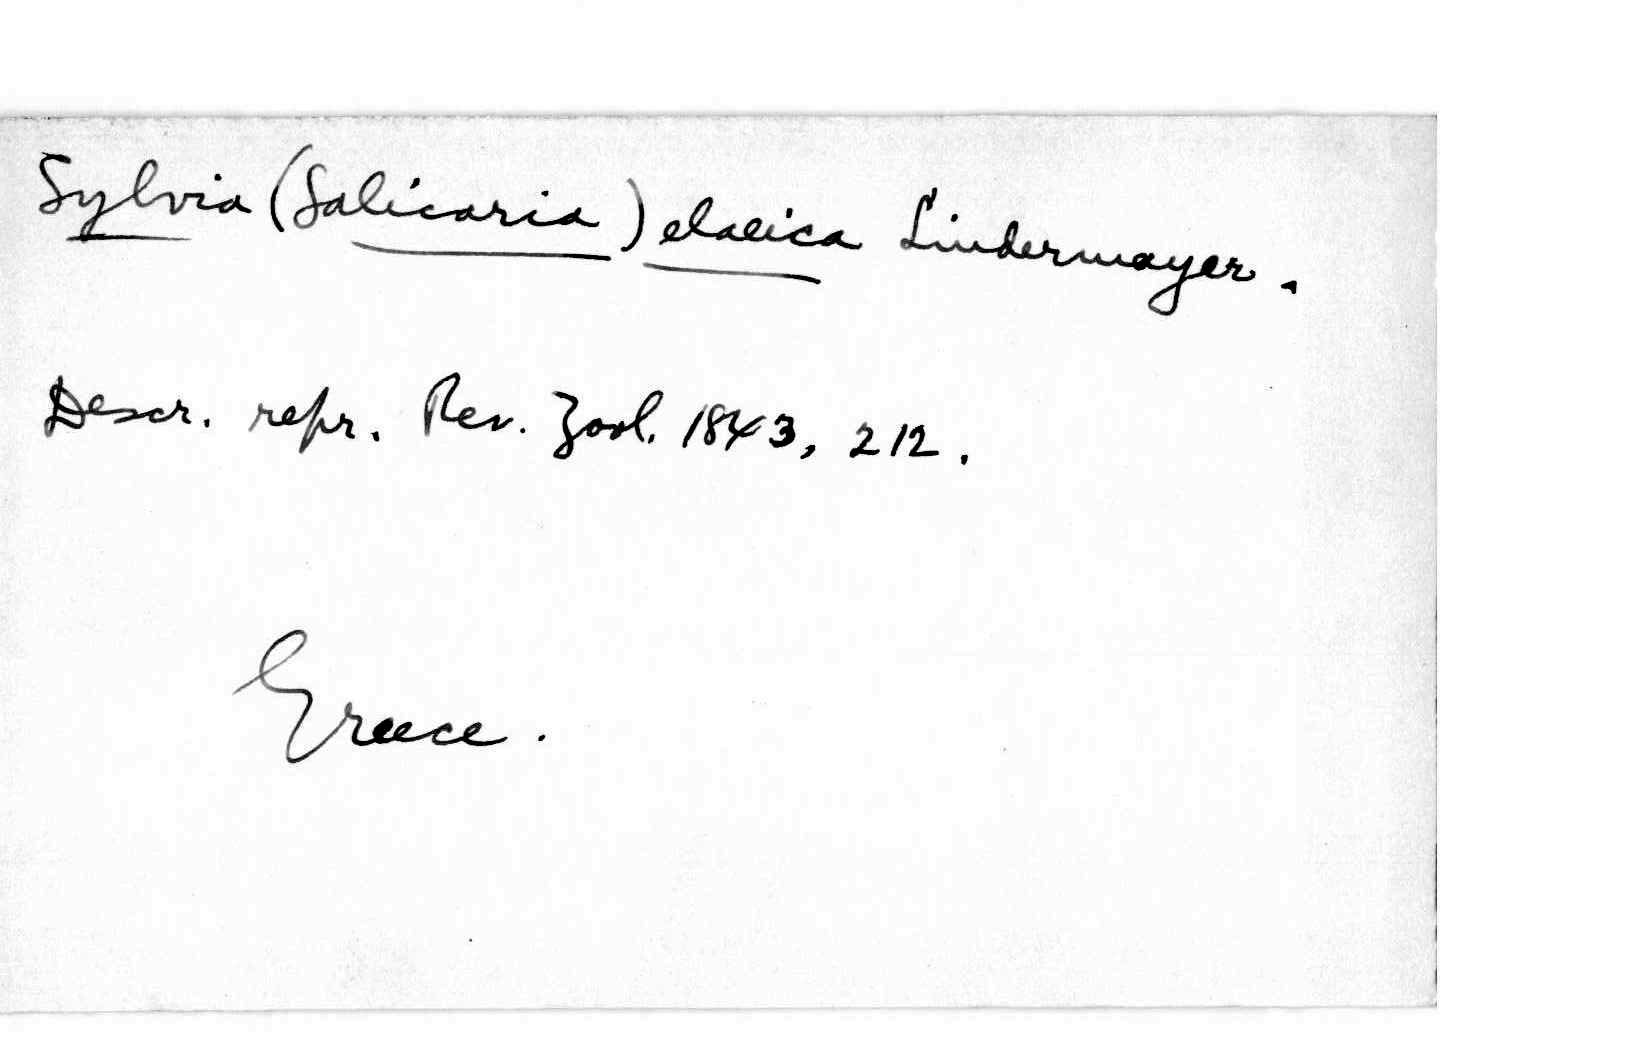 Sylvia (Salicaria) elaeica Lindermayer.
Descr. repr. Rev. Zool. 1843, 212.
Greece.